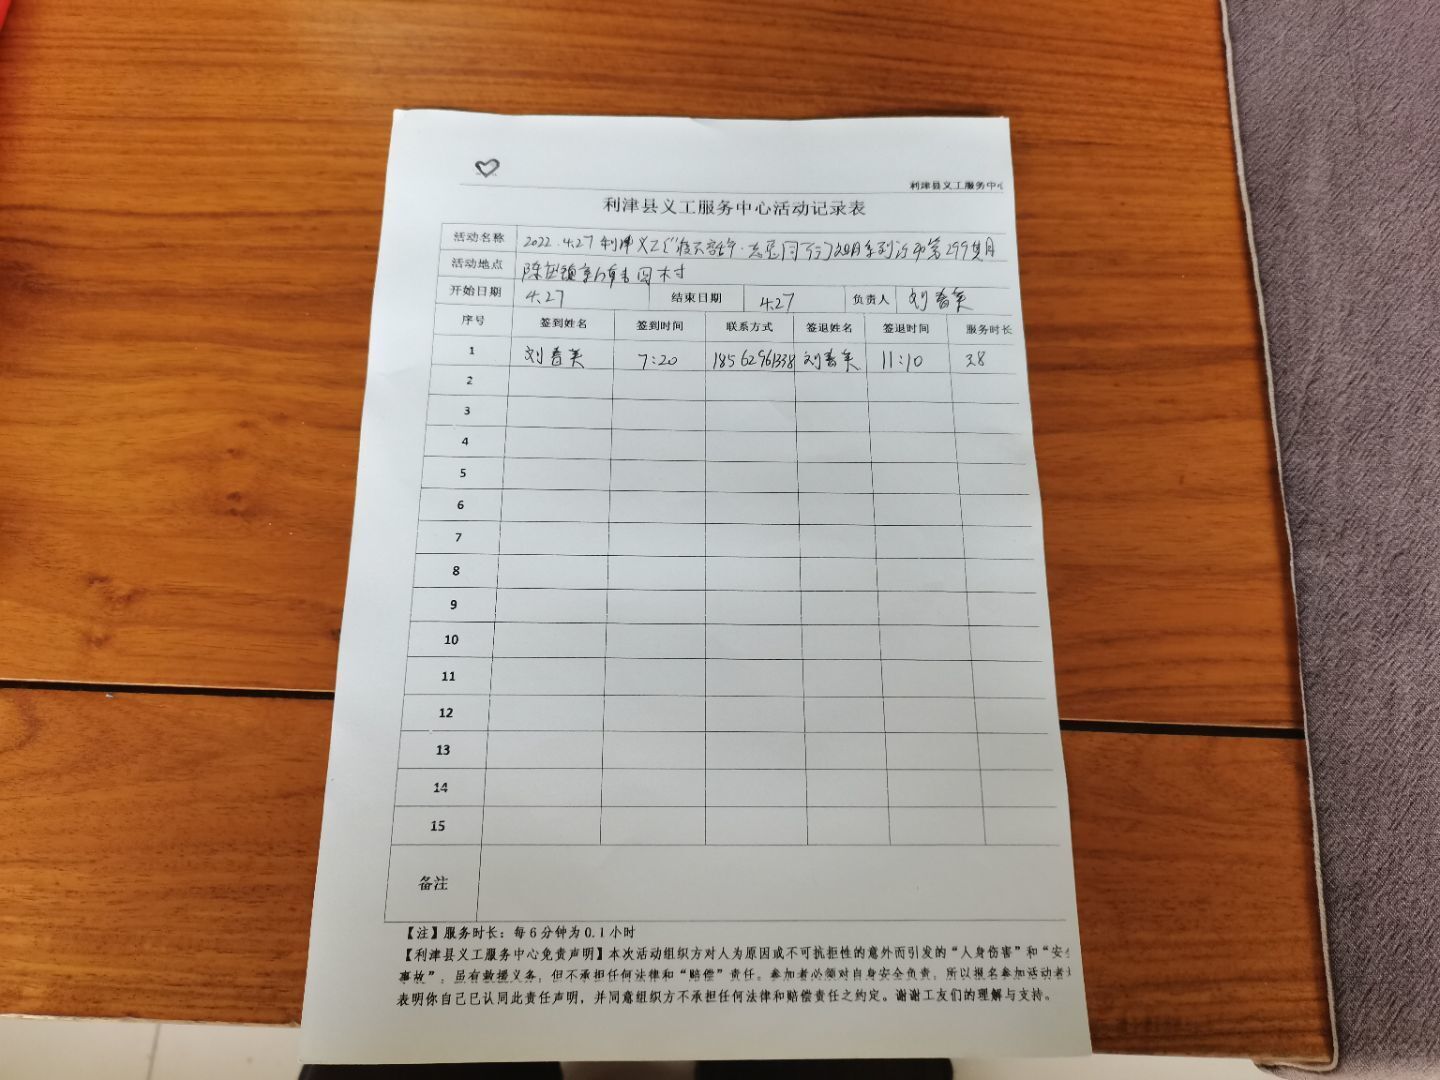 利津县义工服务中心
利津县义工服务中心活动记录表
活动名称 2022.4.27利津义工 文明系列活动第299期
活动地点 陈庄镇 村
开始日期 4.27 结束日期 4.27 负责人 刘春英
序号 签到姓名 签到时间 联系方式 签退姓名 签退时间 服务时长
1 刘春英 7:20 18562961338 刘春英 11:10 3.8
2
3
4
5
6
7
8
9
10
11
12
13
14
15
备注
【注】服务时长：每6分钟为0.1小时
【利津县义工服务中心免责声明】本次活动组织方对人为原因或不可抗拒性的意外而引发的“人身伤害”和“安全
事故”，虽有救援义务，但不承担任何法律和“赔偿”责任。参加者必须对自身安全负责，所以报名参加活动者
表明你自己已认同此责任声明，并同意组织方不承担任何法律和赔偿责任之约定。谢谢工友们的理解与支持。